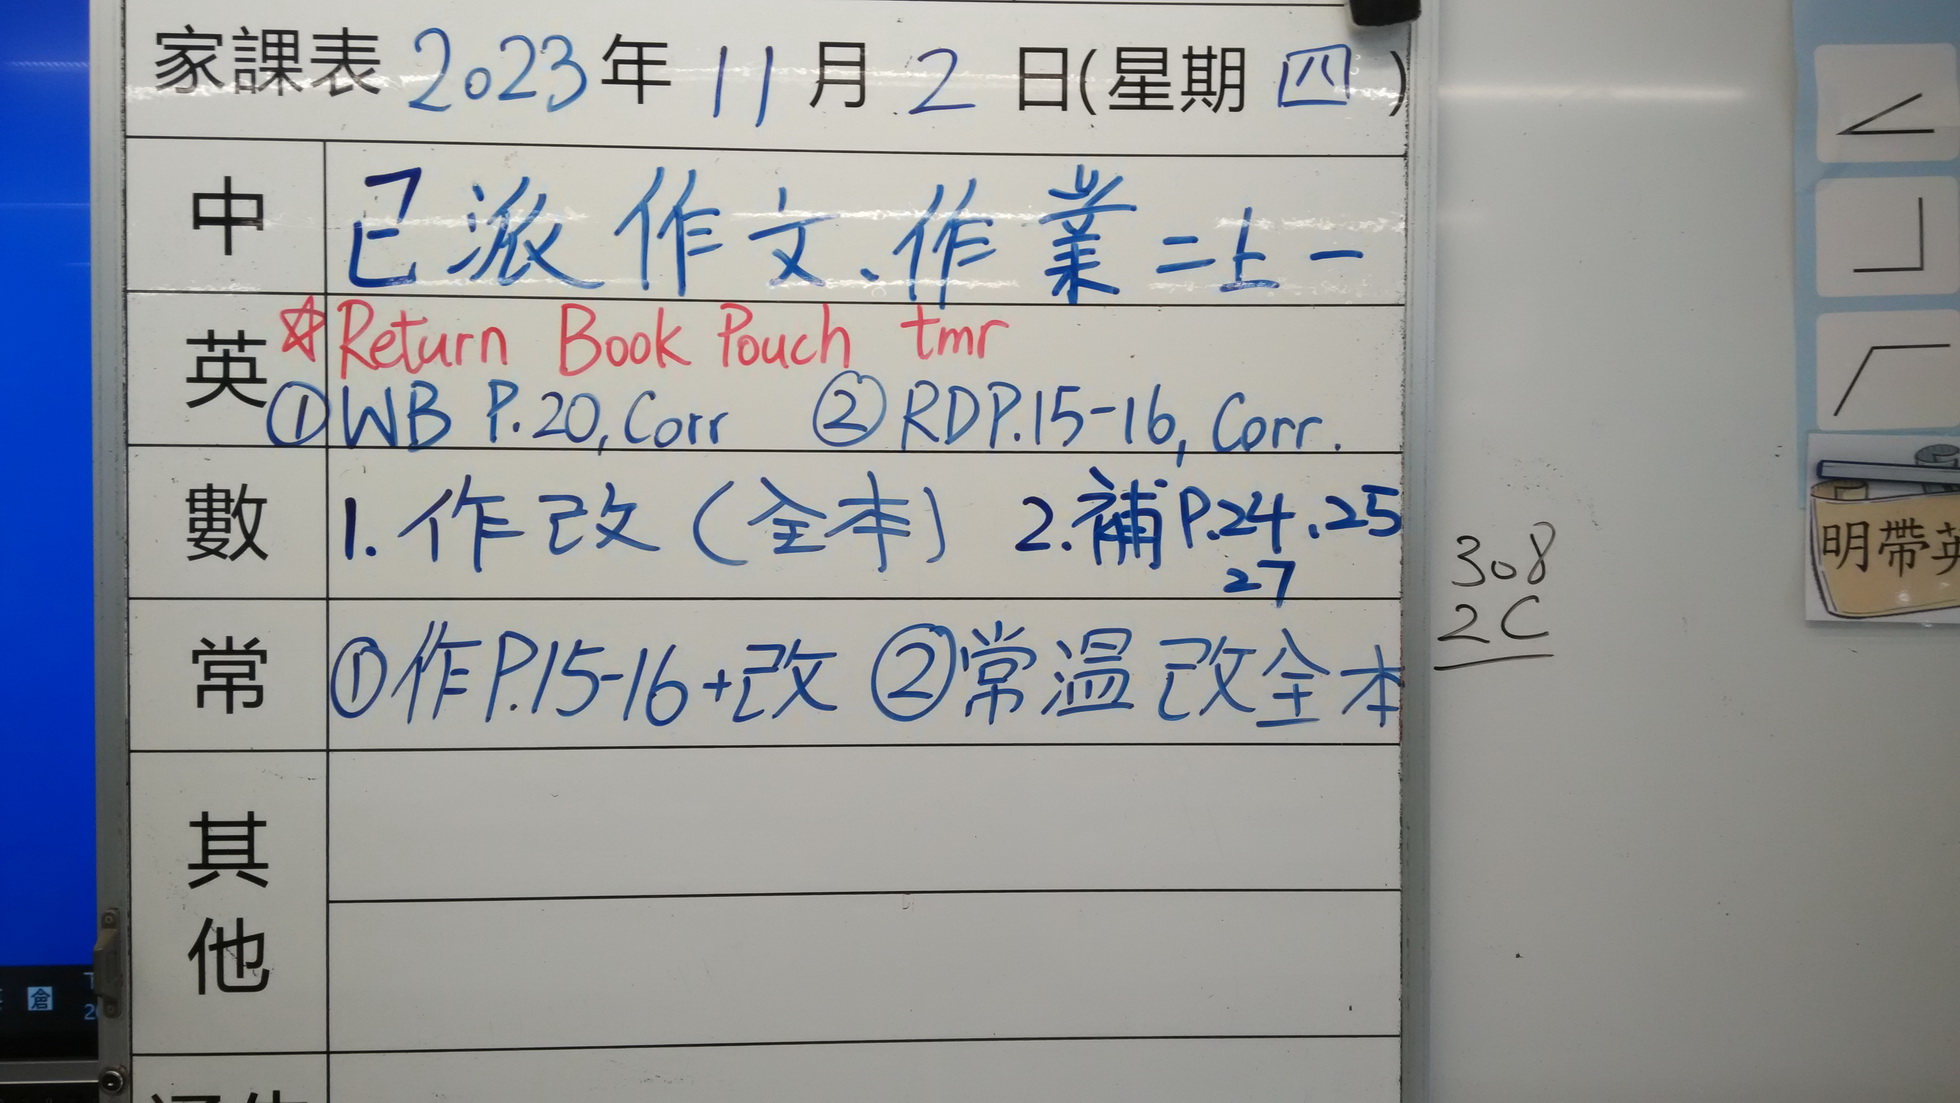 家課表 2023年 11月 2日(星期四)
中 已派作文、作業二上一
英 ☆Return Book Pouch tmr
①WB P.20, Corr ②RDP.15-16, Corr.
數 1. 作改(全本) 2.補P.24.25
27
常 ①作P.15-16+改 ②常溫改全本
其他
308
2C
明帶英
倉